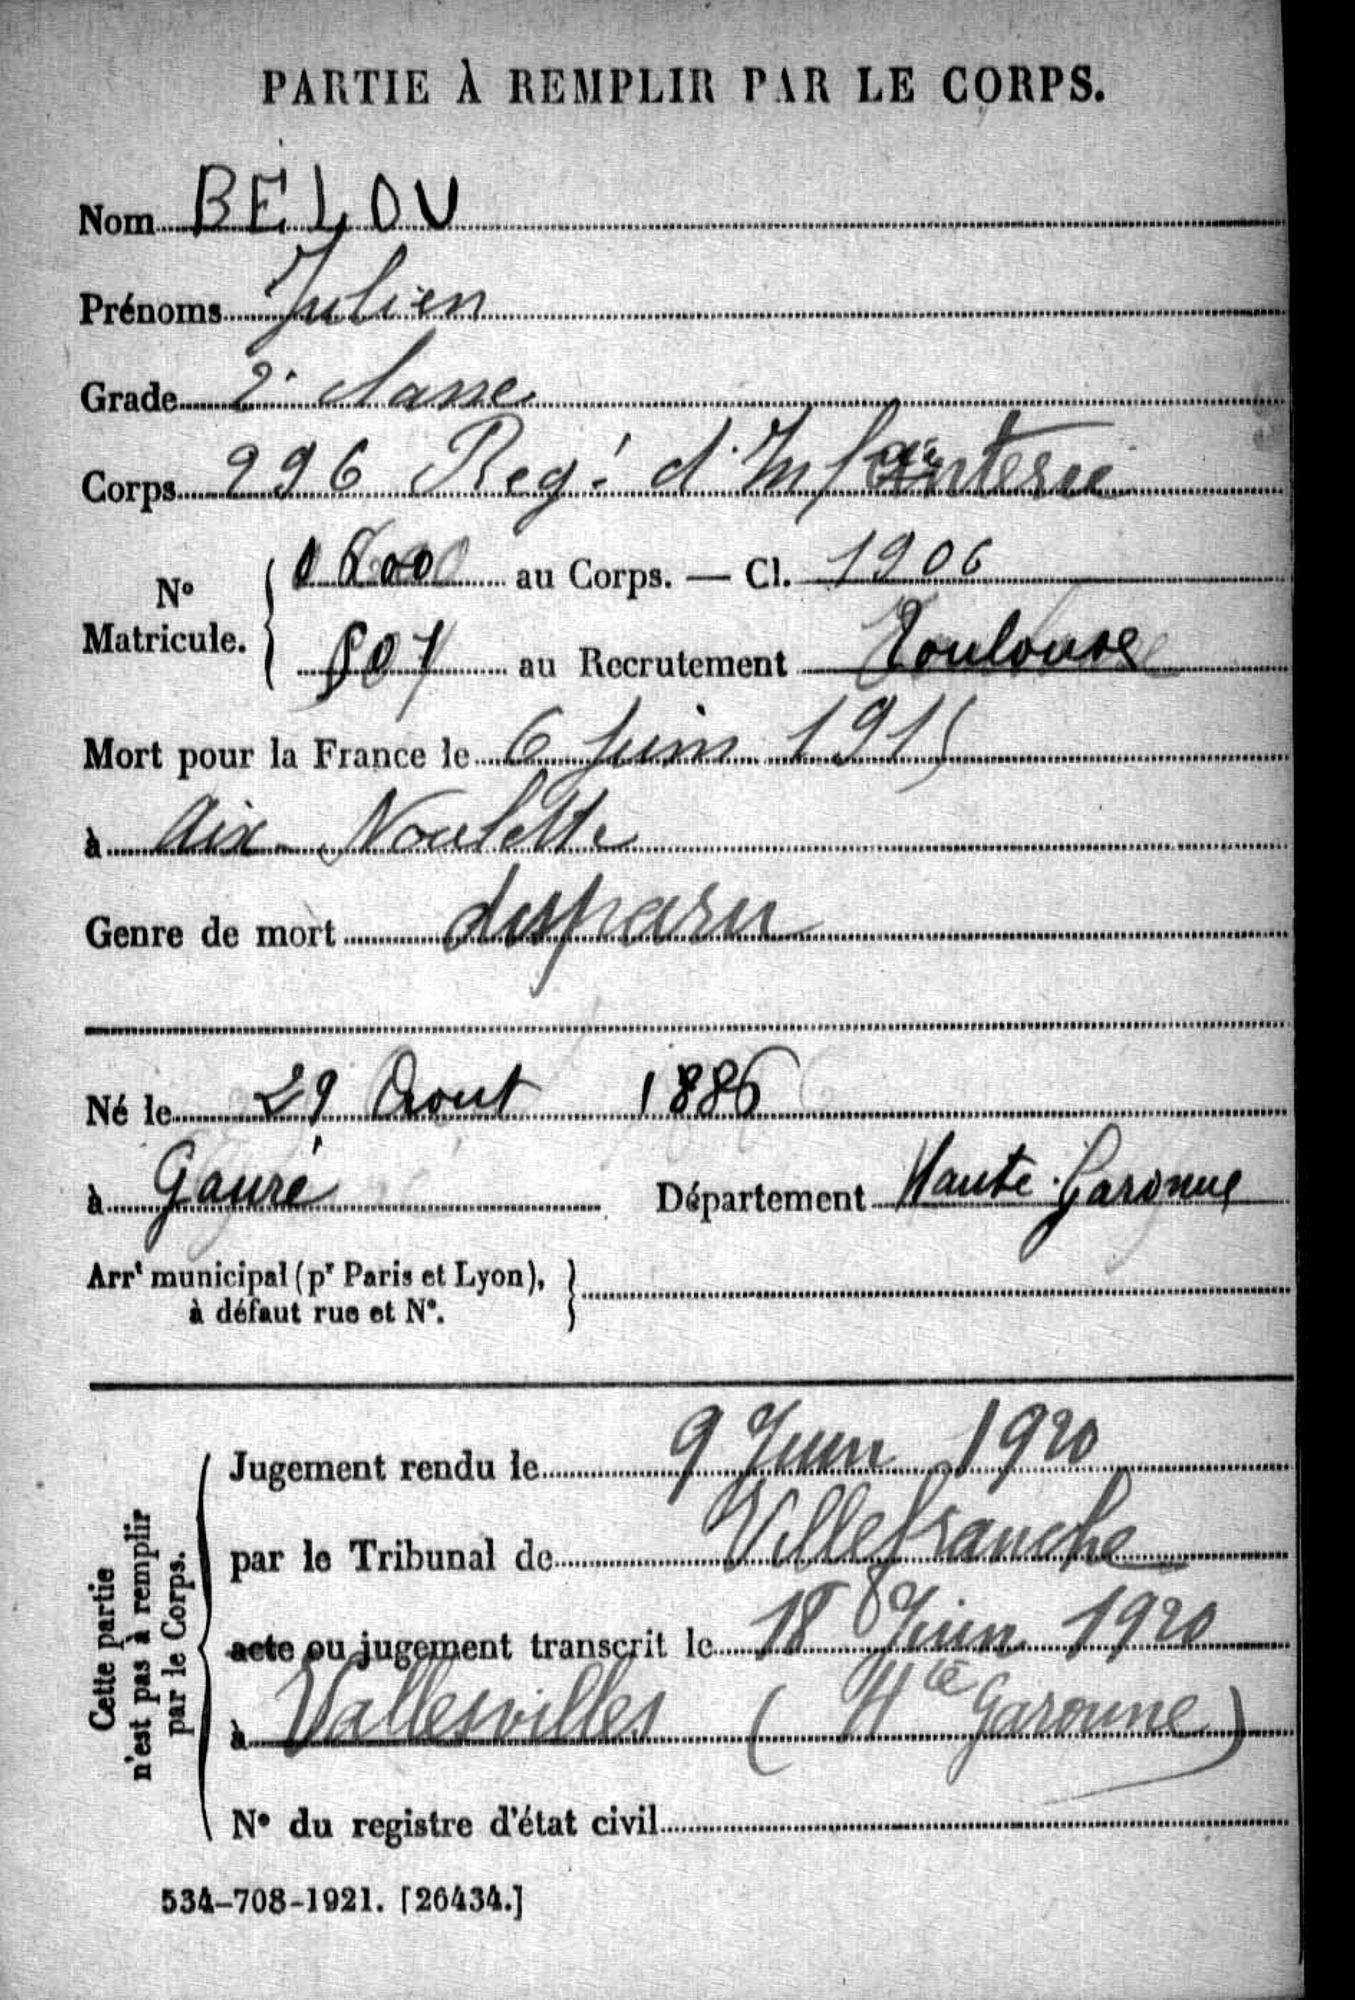 PARTIE À REMPLIR PAR LE CORPS.
Nom BELOU
Prénoms Julien
Grade 2e classe
Corps 296 Regt d'Infanterie
No Matricule. au Corps. — Cl. 1906
507 au Recrutement Toulouse
Mort pour la France le 6 Juin 1915
à Aix-Noulette
Genre de mort disparu
Né le 29 Aout 1886
à Gauré Département Haute-Garonne
Arrt municipal (pr Paris et Lyon),
à défaut rue et No.
Cette partie
n'est pas à remplir
par le Corps.
Jugement rendu le 9 Juin 1920
par le Tribunal de Villefranche
acte ou jugement transcrit le 18 Juin 1920
à Vallesvilles (Hte Garonne)
No du registre d'état civil
534-708-1921. [26434.]